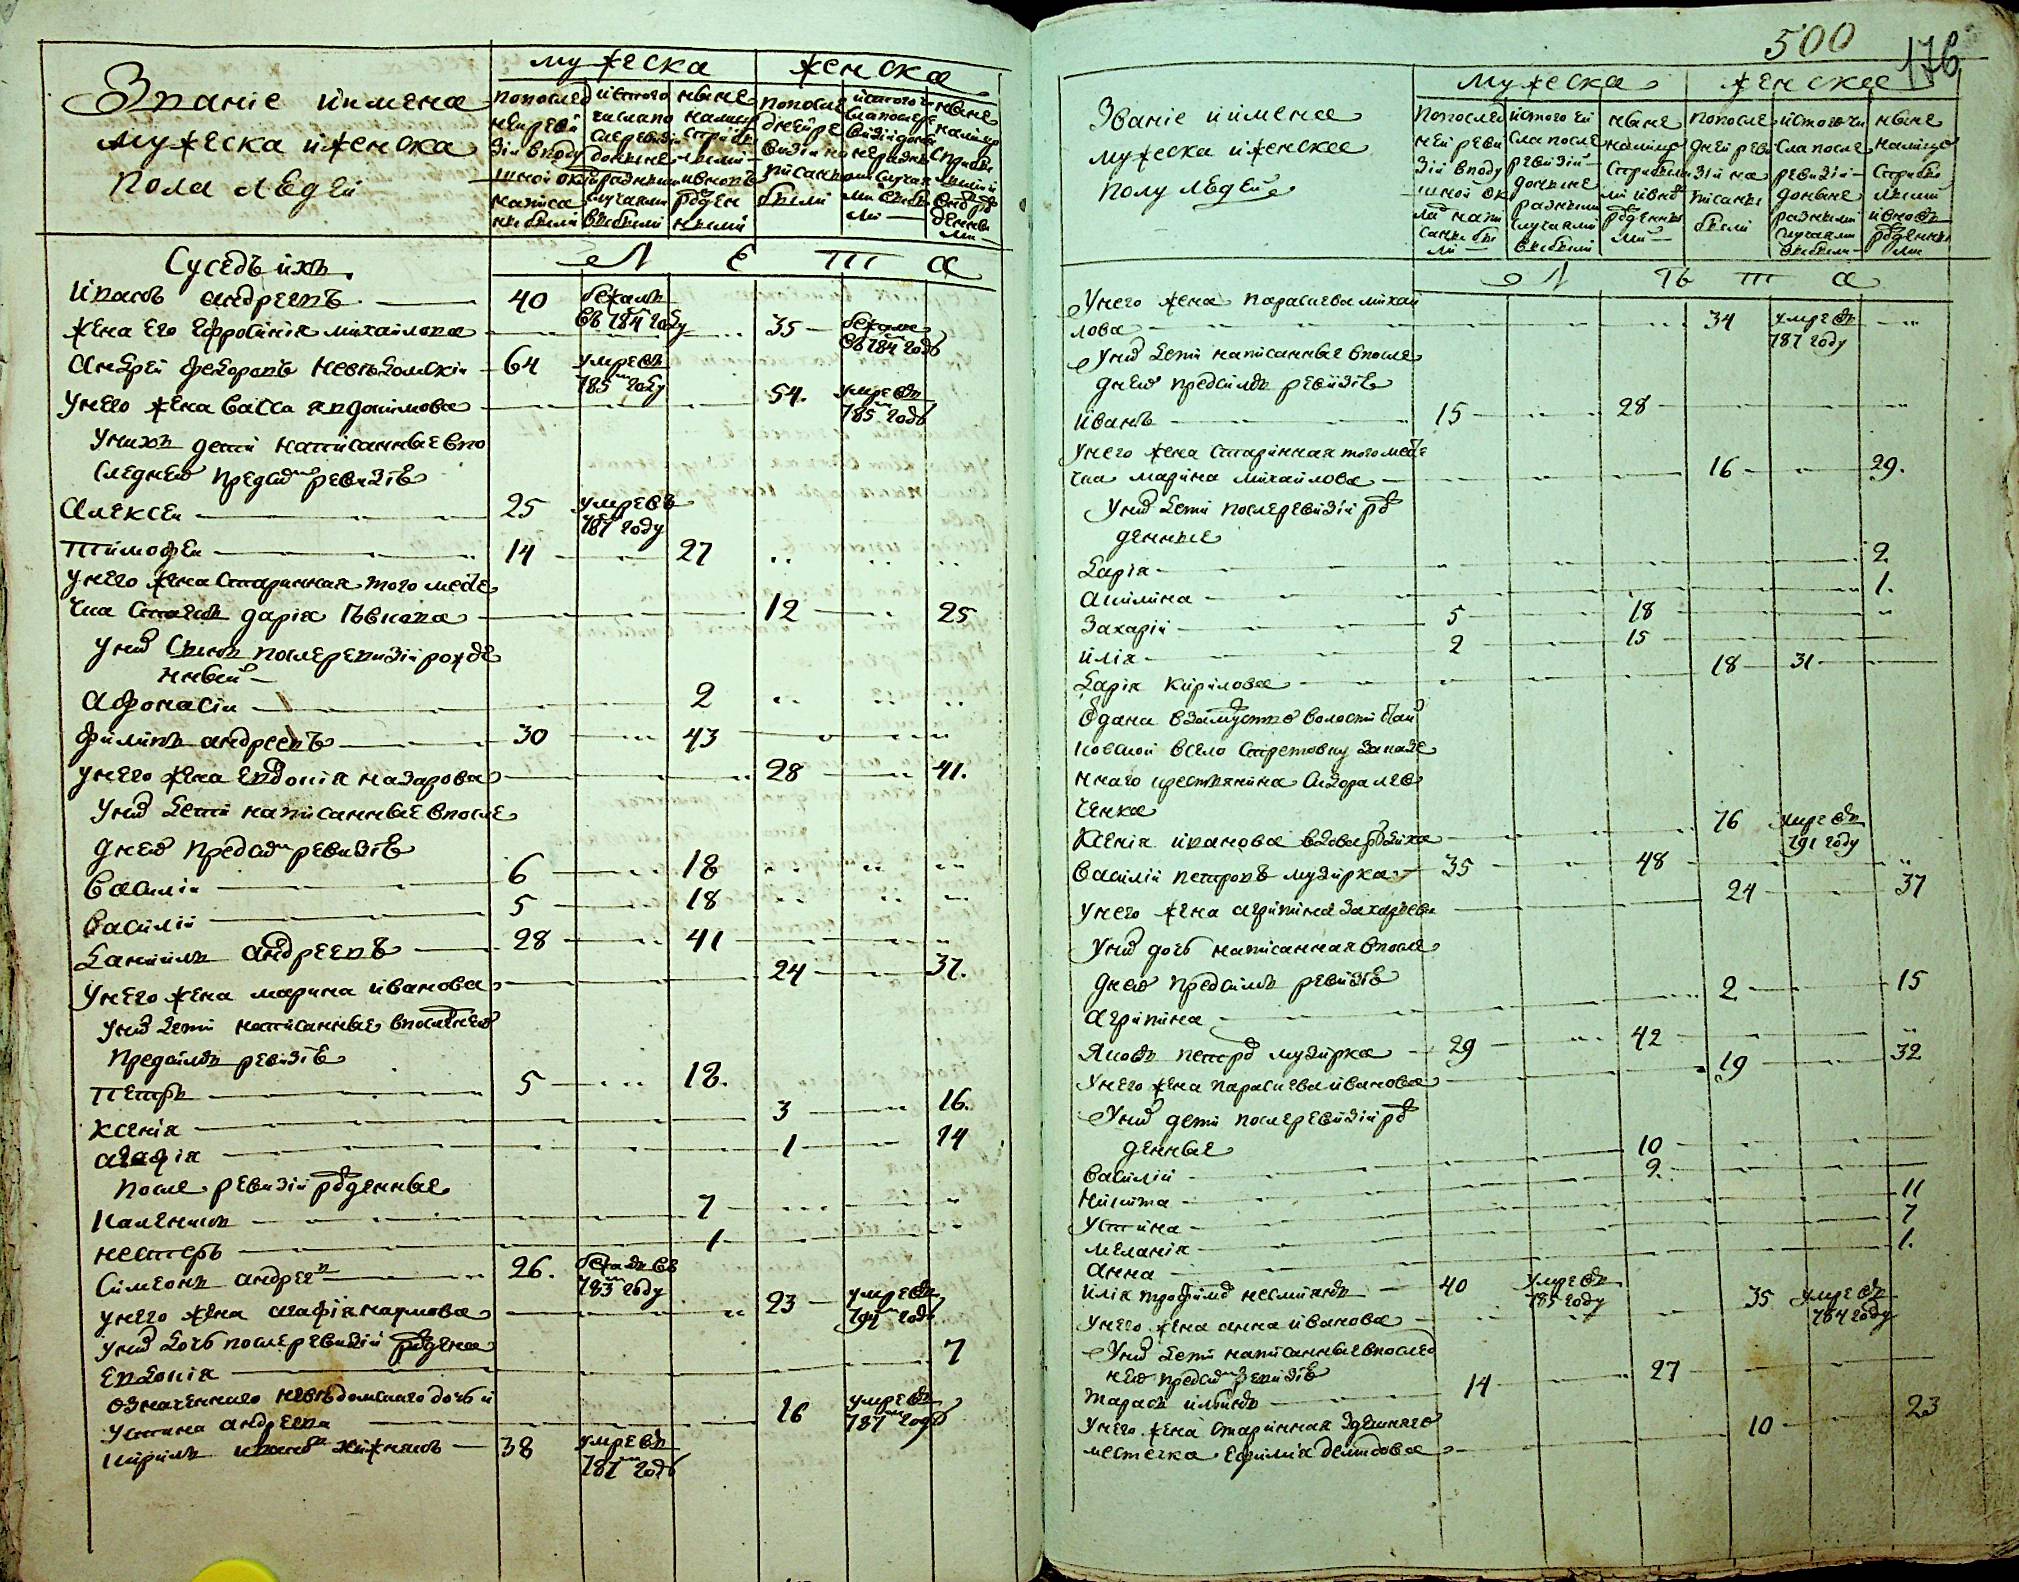 Званіе иимена
мужеска иженска
пола людей
мужеска
женска
попослед
ней реви
зіи вподу
шной окладъ
написа
ны были
исъ того
числа по
сле ревизіи
доныне
разными
случаями
выбыли
ныне
налицо
съ прибы
лыми
и вновь
рожден
ными
попосле
дней ре
визіи на
писаны
были
ис того чи
сла после ре
визіи доны
не разны
ми случая
ми выбы
ли
ныне
налицо
сприбы
лыми и
вновь ро
жденны
ми
Л Е Т а
Суседъ ихъ
Иванъ андреевъ 40 бежалъ
въ 784 году
жена его ефросинія михайлова 35 бежала
въ 784 годъ
Андрей федоровъ Невѣдомскій 64 умревъ
785 году
Унего жена васса евдокимова 54. умревъ
785 годъ
Унихъ дети написанные впо
следней предъ симъ ревизіе
Алексей 25 умревъ
787 году
Тимофей 14 27
Унего жена старинная того месте
чка дарія 12 25
Униъ сынъ после ревизіи рожде
нный
Афонасій 2
Филипъ андреевъ 30 43
Унего жена евдокія назарова 28 41.
Униъ дети написанные впосле
дней предъ симъ ревизіе
Василій 6 18
Василій 5 18
Данило андреевъ 28 41
Унего жена марина иванова 24 37.
Униъ дети написанные впоследней
предсимъ ревизіе
Петръ 5 18.
Ксенія 3 16.
агафія 1 14
После ревизіи рожденные
Каленикъ 7
нестеръ 1
Симеонъ андреевъ 26. бежалъ въ
783 году
унего жена агафія наумова 23 умревъ
годъ
униъ дочь после ревизіи рождена
Евдокія 7
означеннаго невѣдомскаго дочь
Устина андреева 16 умревъ
787 годъ
Кирилъ ивановъ 38 умревъ
787 годъ
500
176
Званіе иимена
мужеска иженска
полу людей
мужеска
женска
попослед
ней реви
зіи вподу
шной ок
ладъ напи
саны бы
ли
ис того чи
сла после
ревизіи
доныне
разными
случаями
выбыли
ныне
налицо
с прибылы
ми и вновь
рожденны
ми
попосле
дней реви
зіи на
писаны
были
ис того чи
сла после
ревизіи
доныне
разными
случаями
выбыли
ныне
налицо
с прибы
лыми
и вновь
рожденны
ми
Л Ѣ Т а
Унего жена параскева михай
лова 34 умревъ
787 году
Униъ дети написанные впосле
дней предсимъ ревизіе
Иванъ 15 28
Унего жена старинная того месте
чка марина михайлова 16 29.
Униъ дети после ревизіи ро
жденные
Дарія 2
Акилина 1.
Захарій 5 18
илія 2 15
Дарія кирилова 18 31
Одана взамужство волости
въ село Стретовку за казе
ннаго крестянина Сидора лев
ченка
Ксенія иванова вдова 76 умревъ
791 году
Василій петровъ музирка 35 48
Унего жена агрипина Захарьева 24 37
Униъ дочь написанная впосле
дней предсимъ ревизіе
Агрипина 2 15
Яковъ петровъ музирка 29 42
Унего жена параскева иванова 19 32
Униъ дети после ревизіи ро
жденные
Василій 10
Никита 2.
Устина 11
меланія 7
Анна 1.
Илія трофимовъ 40 умревъ
785 году
Унего жена анна иванова 35 умревъ
784 году
Униъ дети написанные впослед
ней предсимъ ревизіе
Тарасъ 14 27
Унего жена старинная здешнего
местечка Ефимія демидова 10 23